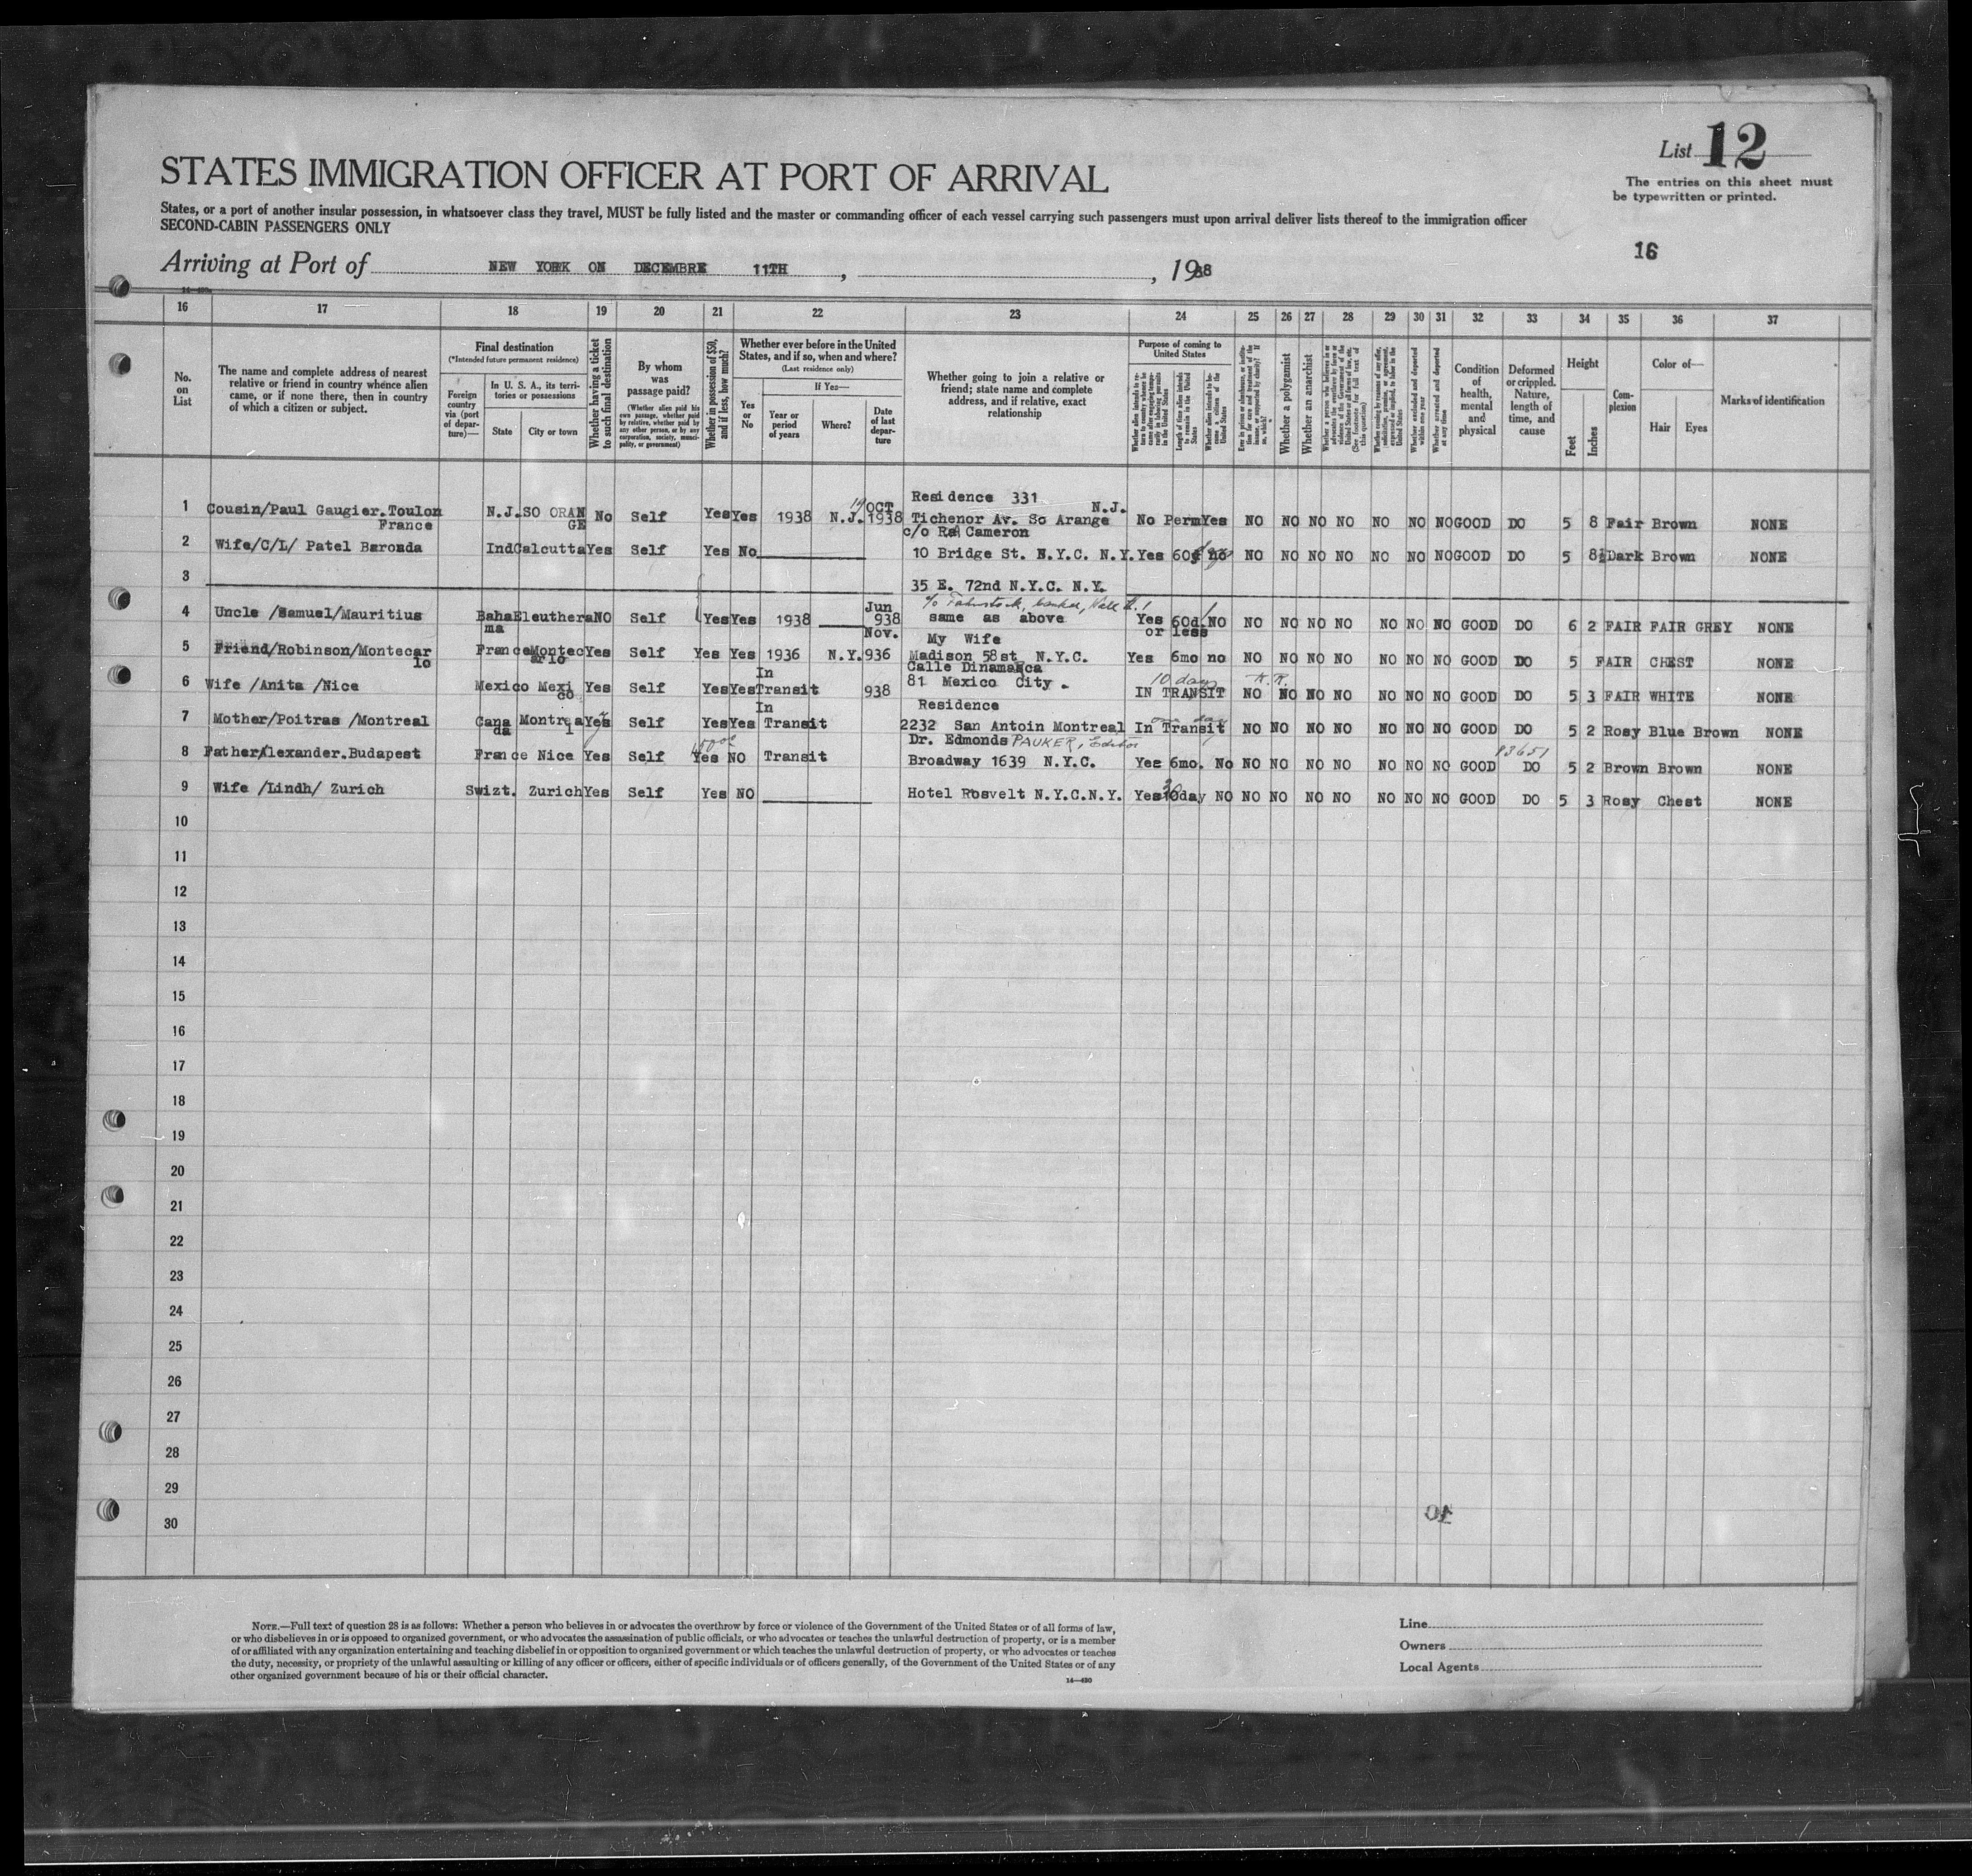 List 12
The entries on this sheet must
be typewritten or printed.
STATES IMMIGRATION OFFICER AT PORT OF ARRIVAL
States, or a port of another insular possession, in whatsoever class they travel, MUST be fully listed and the master or commanding officer of each vessel carrying such passengers must upon arrival deliver lists thereof to the immigration officer
SECOND-CABIN PASSENGERS ONLY
16
Arriving at Port of NEW YORK ON DECEMBRE 11TH, , 1938
16 17 18 19 20 21 22 23 24 25 26 27 28 29 30 31 32 33 34 35 36 37
No. on List
The name and complete address of nearest relative or friend in country whence alien came, or if none there, then in country of which a citizen or subject.
Final destination
(*Intended future permanent residence)
Foreign country via (port of departure)—
In U. S. A., its territories or possessions
State
City or town
Whether having a ticket to such final destination
By whom was passage paid?
(Whether alien paid his own passage, whether paid by relative, whether paid by any other person, or by any corporation, society, municipality, or government)
Whether in possession of $50, and if less, how much?
Whether ever before in the United States, and if so, when and where?
(Last residence only)
Yes or No
If Yes—
Year or period of years
Where?
Date of last departure
Whether going to join a relative or friend; state name and complete address, and if relative, exact relationship
Purpose of coming to United States
Length of time alien intends to remain in the United States
Whether alien intends to become a citizen of the United States
Whether a polygamist
Whether an anarchist
Whether excluded and deported within one year
Whether arrested and deported at any time
Condition of health, mental and physical
Deformed or crippled. Nature, length of time, and cause
Height
Feet
Inches
Complexion
Color of—
Hair
Eyes
Marks of identification
1 Cousin/Paul Gaugier.Toulon France N.J. SO ORANGE No Self Yes Yes 1938 N.J. 19 OCT 1938 Residence 331 Tichenor Av. So Arange N.J. No Perm Yes NO NO NO NO NO NO NO GOOD DO 5 8 Fair Brown NONE
2 Wife/C/L/ Patel Baronda Ind Calcutta Yes Self Yes No c/o Cameron 10 Bridge St. N.Y.C. N.Y. Yes 60 no NO NO NO NO NO NO NO GOOD DO 5 8½ Dark Brown NONE
3 35 E. 72nd N.Y.C. N.Y.
4 Uncle /Samuel/Mauritius Bahama Eleuthera NO Self Yes Yes 1938 Jun 938 same as above Yes 60d. or less NO NO NO NO NO NO NO NO GOOD DO 6 2 FAIR FAIR GREY NONE
5 Friend/Robinson/Montecarlo France Montecarlo Yes Self Yes Yes 1936 N.Y. Nov. 936 My Wife Madison 58st N.Y.C. Yes 6mo no NO NO NO NO NO NO NO GOOD DO 5 FAIR CHEST NONE
6 Wife /Anita /Nice Mexico Mexico Yes Self Yes Yes In Transit 938 Calle Dinamarca 81 Mexico City. 10 days IN TRANSIT NO NO NO NO NO NO NO GOOD DO 5 3 FAIR WHITE NONE
7 Mother/Poitras /Montreal Canada Montreal Yes Self Yes Yes In Transit Residence 2232 San Antoin Montreal one day In Transit NO NO NO NO NO NO NO GOOD DO 5 2 Rosy Blue Brown NONE
8 Father/Alexander.Budapest France Nice Yes Self Yes NO Transit Dr. Edmonds PAUKER, Editor Broadway 1639 N.Y.C. Yes 6mo. No NO NO NO NO NO NO NO GOOD 93651 DO 5 2 Brown Brown NONE
9 Wife /Lindh/ Zurich Swizt. Zurich Yes Self Yes NO Hotel Rosvelt N.Y.C.N.Y. Yes 30 day NO NO NO NO NO NO NO NO GOOD DO 5 3 Rosy Chest NONE
10
11
12
13
14
15
16
17
18
19
20
21
22
23
24
25
26
27
28
29
30
NOTE.—Full text of question 28 is as follows: Whether a person who believes in or advocates the overthrow by force or violence of the Government of the United States or of all forms of law,
or who disbelieves in or is opposed to organized government, or who advocates the assassination of public officials, or who advocates or teaches the unlawful destruction of property, or is a member
of or affiliated with any organization entertaining and teaching disbelief in or opposition to organized government or which teaches the unlawful destruction of property, or who advocates or teaches
the duty, necessity, or propriety of the unlawful assaulting or killing of any officer or officers, either of specific individuals or of officers generally, of the Government of the United States or of any
other organized government because of his or their official character.
14—480
Line
Owners
Local Agents